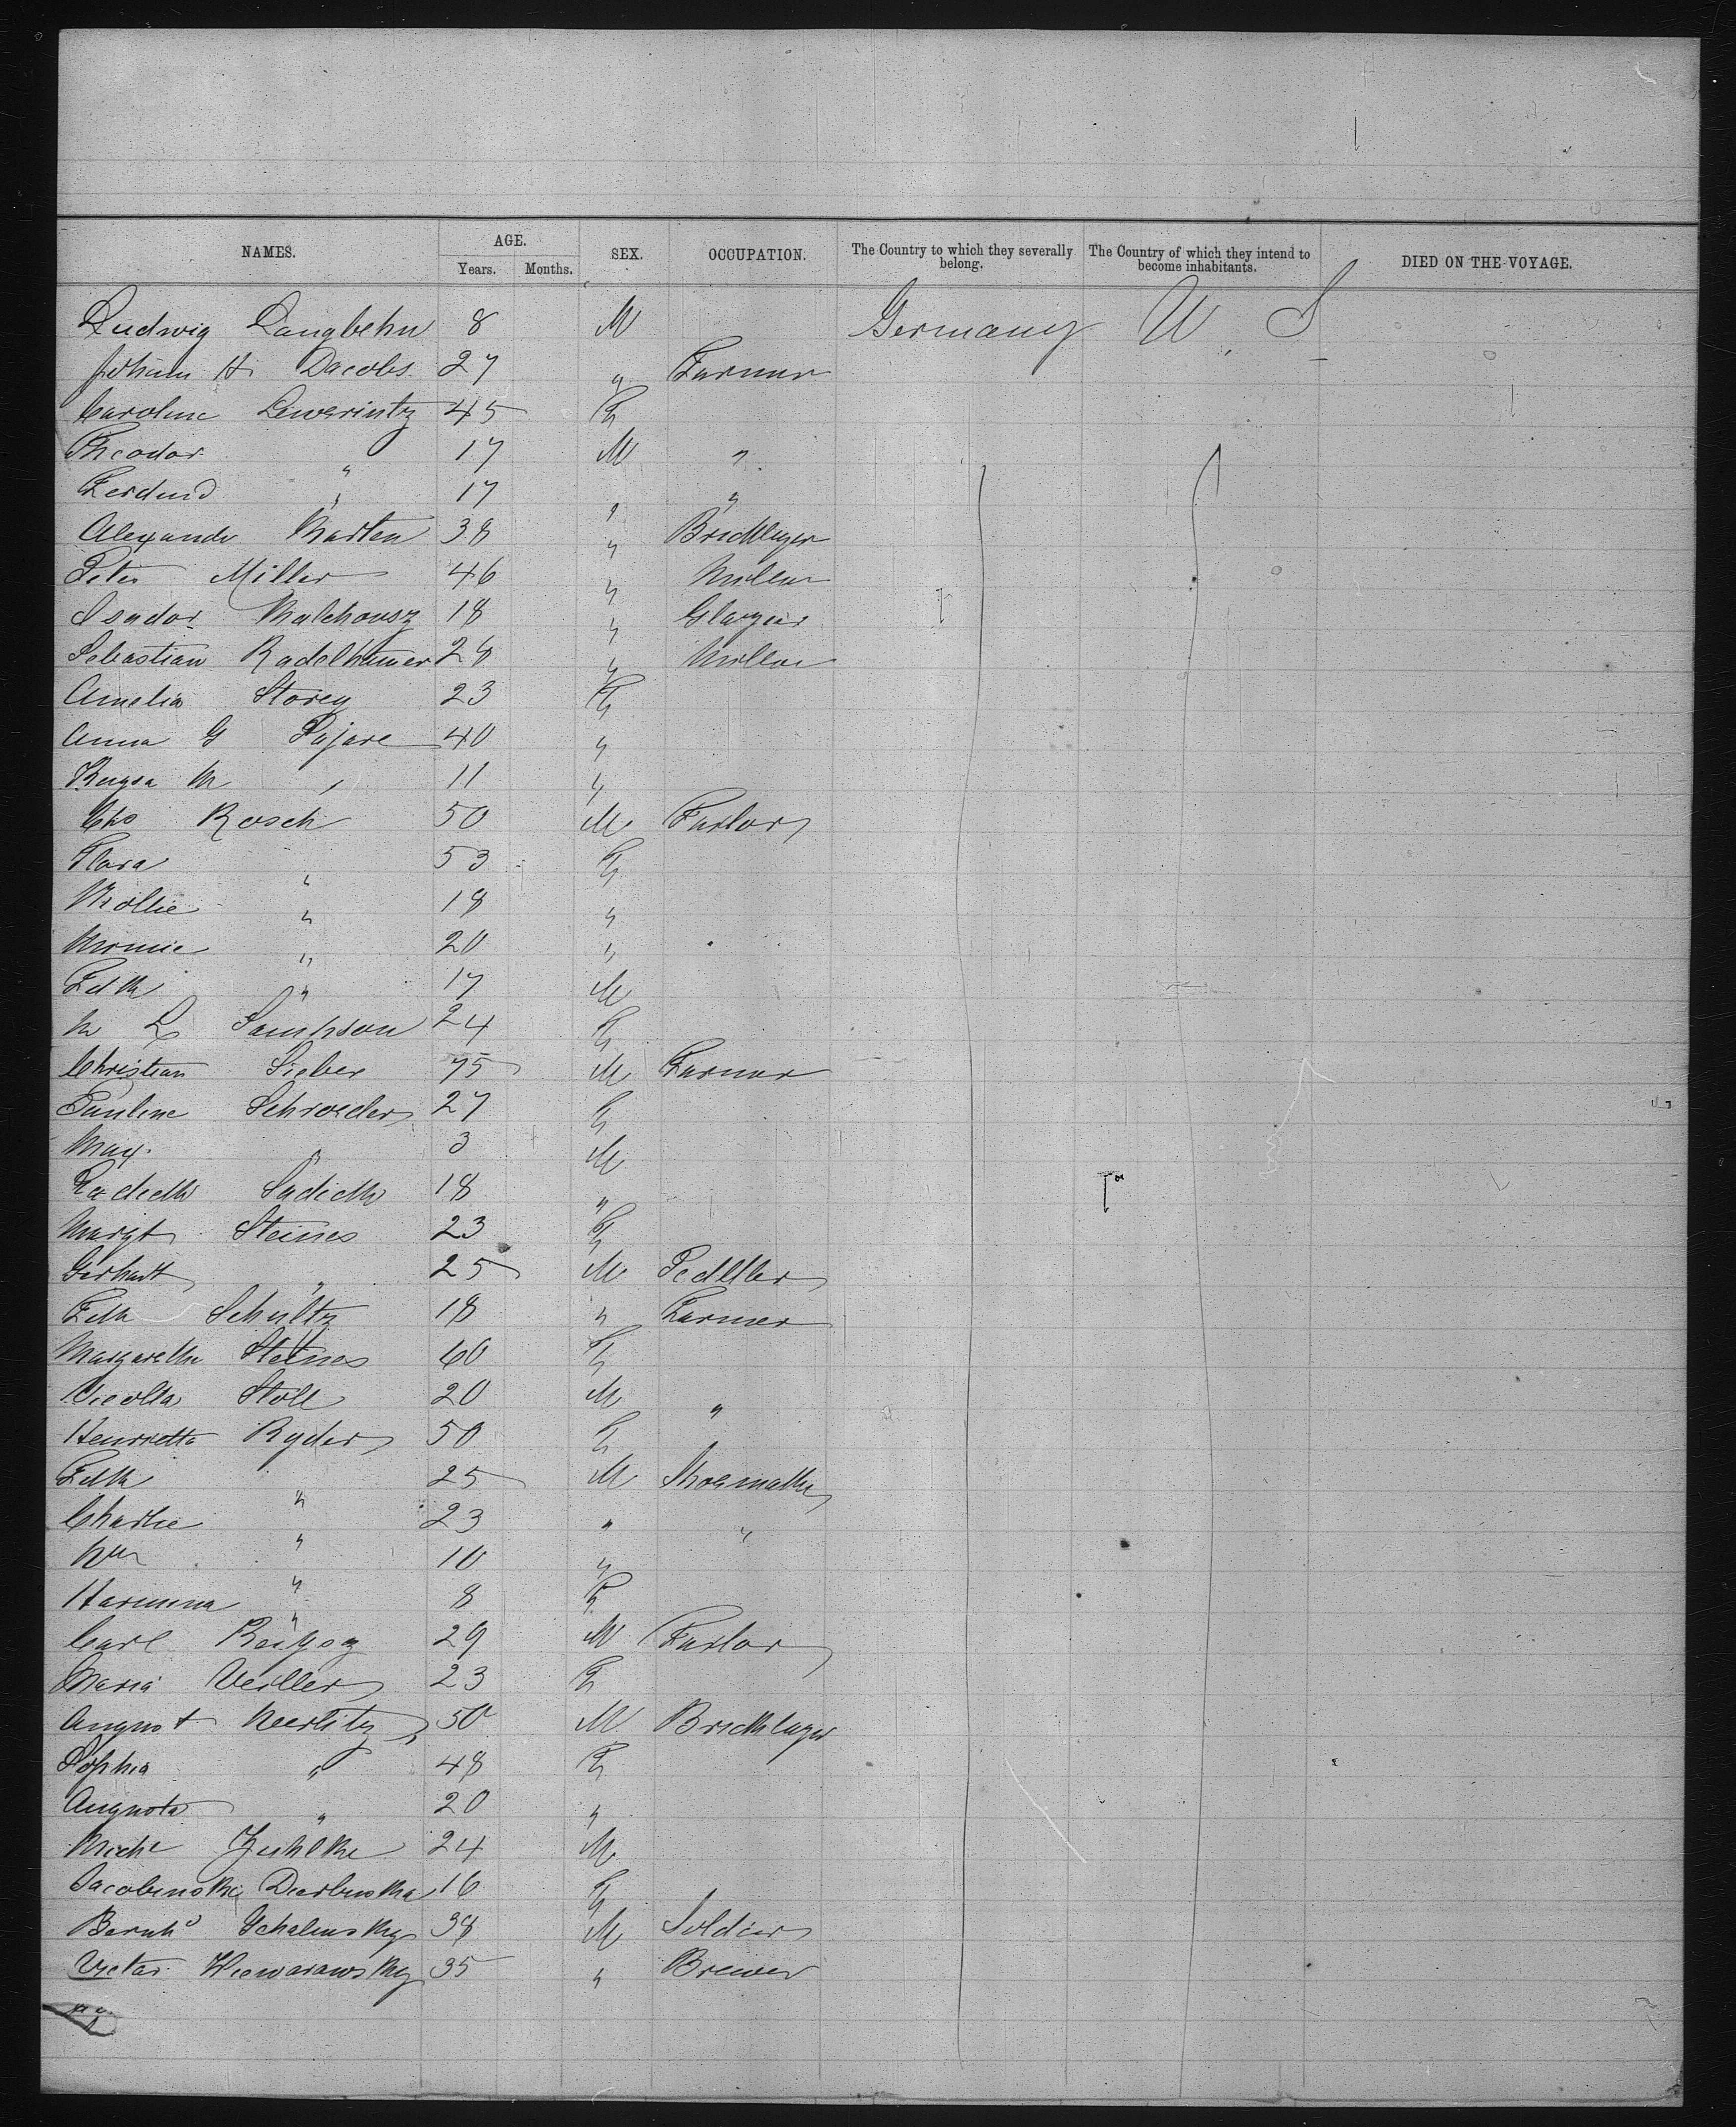 NAMES. AGE. SEX. OCCUPATION. The Country to which they severally belong. The Country of which they intend to become inhabitants. DIED ON THE VOYAGE.
Years. Months.
Ludwig Langbehn 8 M Germany U. S
H Jacobs 27 " Farmer
Caroline Lewerintz 45 F
Theodor " 17 M "
Ferdind " 17 " "
Alexander Marten 38 " Bricklayer
Peter Miller 46 " Miller
Isador 18 " Glazier
Sebastian Radelhamer 28 " Miller
Amelia Storey 23 F
Anna G Pajare 40 "
M " 11 "
Chs Rosch 50 M Tailor
Flora " 53 F
Mollie " 18 "
Minnie " 20 "
Fdk " 17 M
M L Sampson 24 F
Christian Sieber 75 M Farmer
Pauline Schroeder 27 F
Max " 3 M
18 "
Margt Steines 23 F
Gerhart " 25 M Peddler
Fdk Schultz 18 " Farmer
Margaretha Steines 60 F
Nicolla Stoll 20 M "
Henrietta Ryder 50 F
Fdk " 25 M Shoemaker
Charlie " 23 " "
Wm " 10 "
Harmina " 8 F
Carl 29 M Tailor
Maria Veiller 23 F
August Neerlitz 50 M Bricklayer
Sophia " 48 F
Augusta " 20 "
Michl Zuhlke 24 M
Jacobinski 16 F
Bernhd Schalinsky 38 M Soldier
Victor 35 " Brewer